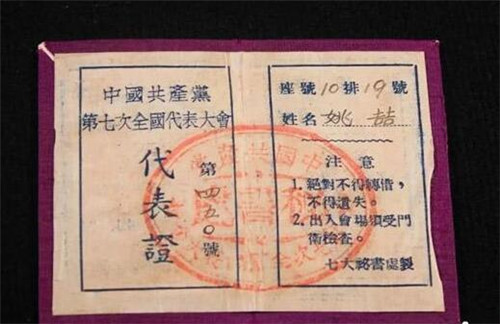 中國共產黨
第七次全國代表大會
代表證
第四五〇號
座號10排19號
姓名 姚喆
注意
1. 絕對不得轉借，
不得遺失。
2. 出入會場須受門
衛檢查。
七大秘書處製